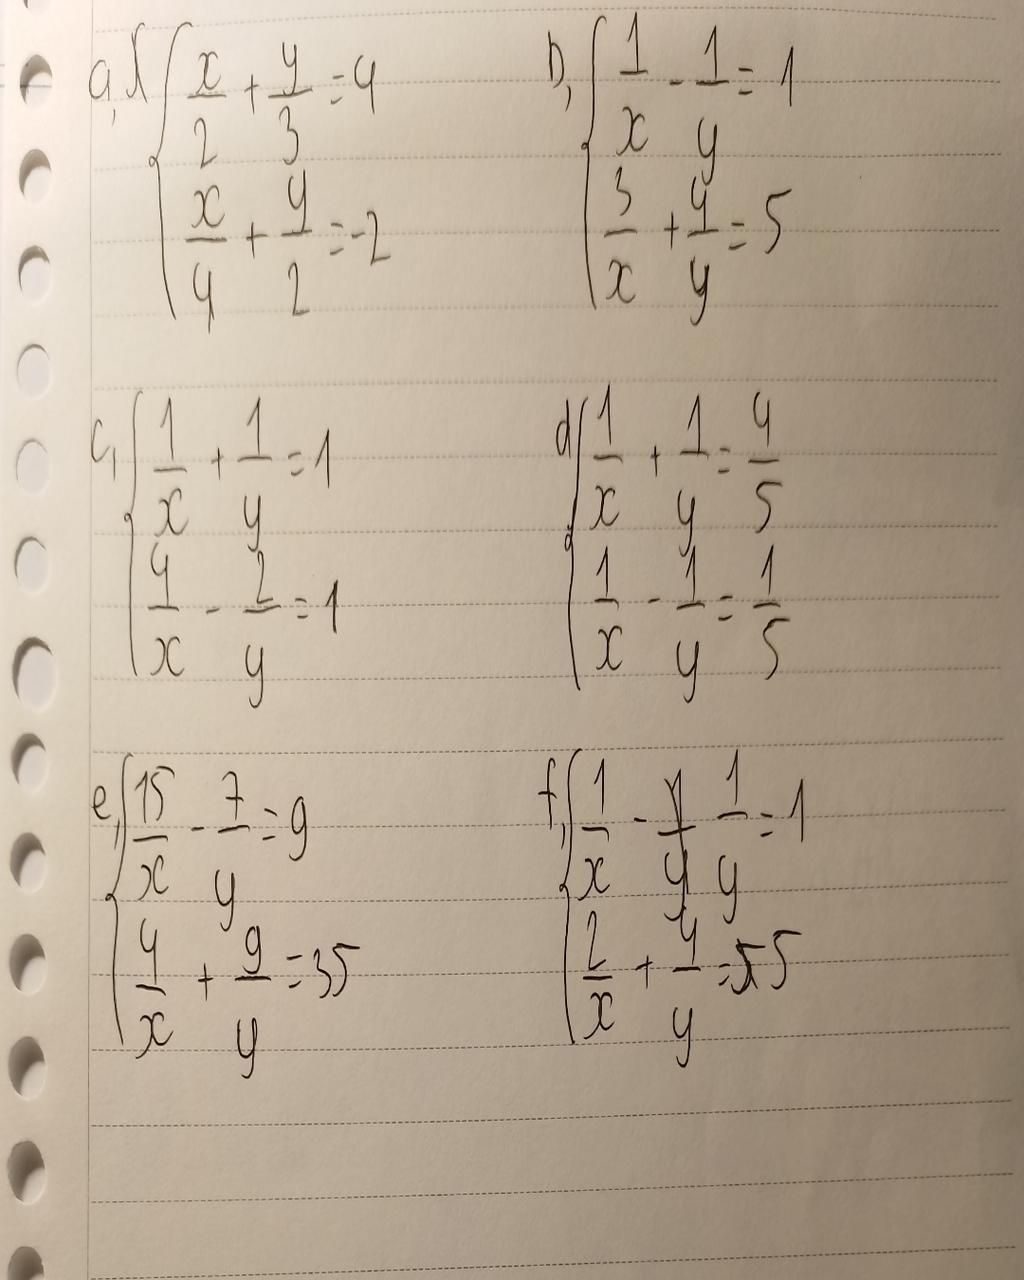 a, { x/2 + y/3 = 4
x/4 + y/2 = -2
b, { 1/x - 1/y = 1
3/x + 4/y = 5
c, { 1/x + 1/y = 1
4/x - 2/y = 1
d { 1/x + 1/y = 4/5
1/x - 1/y = 1/5
e, { 15/x - 7/y = 9
4/x + 9/y = 35
f, { 1/x - 1/y = 1
2/x + 4/y = 5